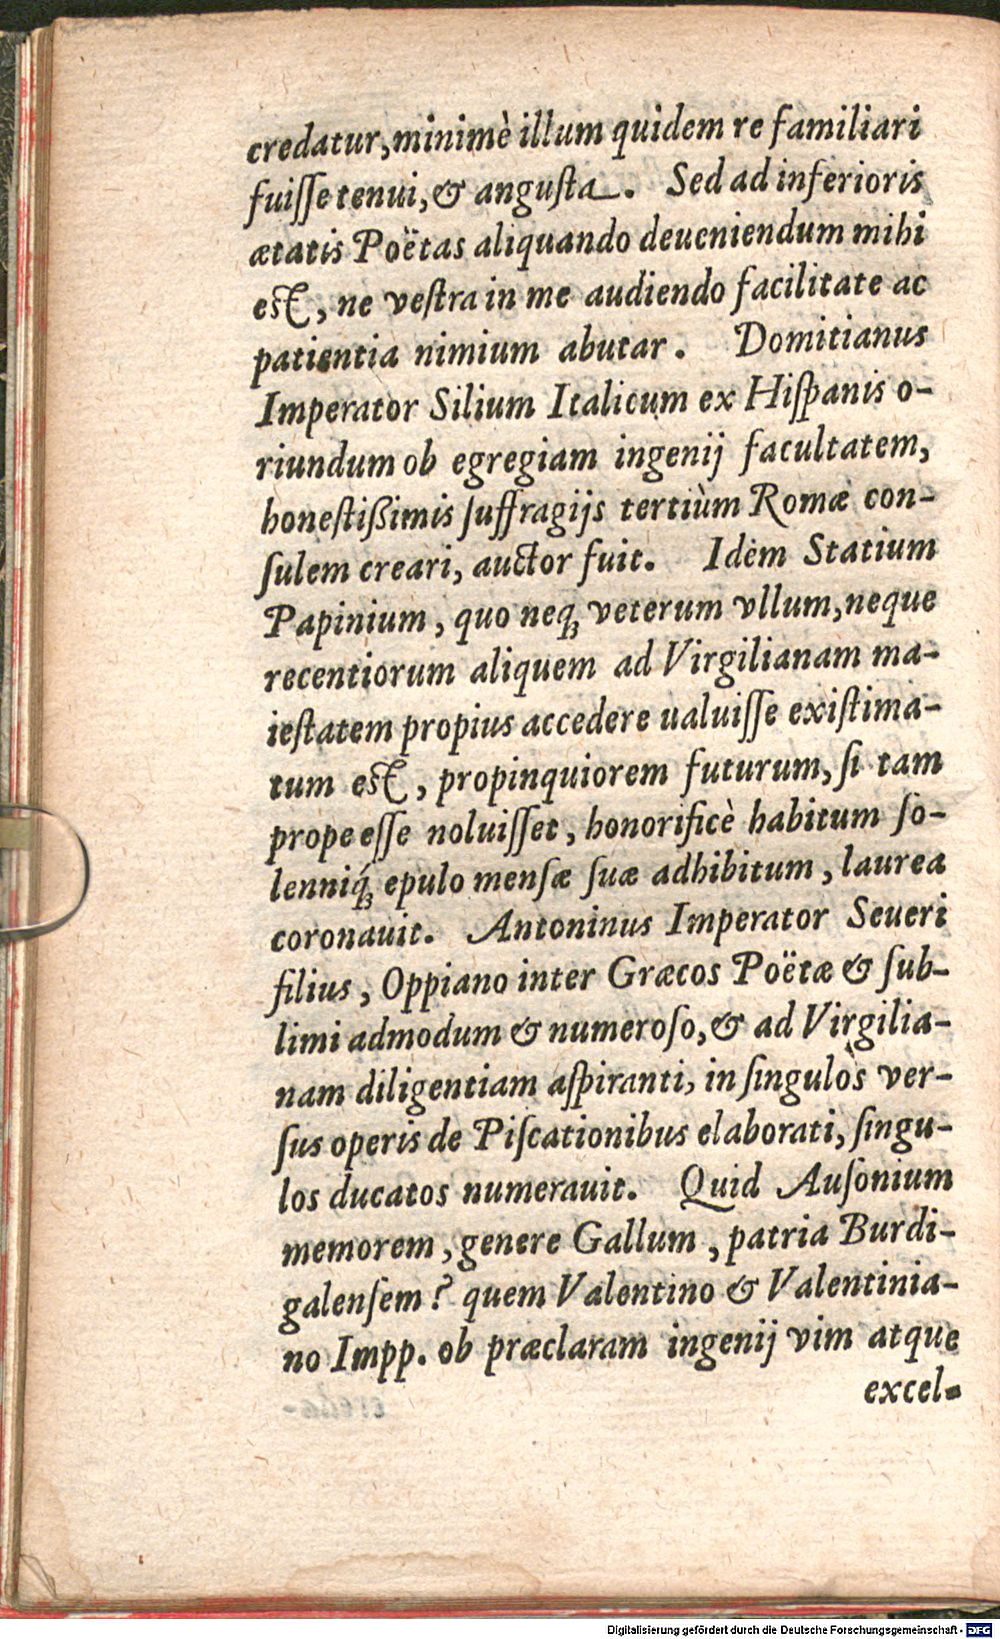 credatur, minimè illum quidem re familiari
fuiſſe tenui, & anguſta. Sed ad inferioris
ætatis Poëtas aliquando deueniendum mihi
eſt, ne veſtra in me audiendo facilitate ac
patientia nimium abutar. Domitianus
Imperator Silium Italicum ex Hiſpanis o-
riundum ob egregiam ingenij facultatem,
honeſtißimis ſuffragijs tertiùm Romæ con-
ſulem creari, auctor fuit. Idem Statium
Papinium, quo neq; veterum vllum, neque
recentiorum aliquem ad Virgilianam ma-
ieſtatem propius accedere ualuiſſe exiſtima-
tum eſt, propinquiorem futurum, ſi tam
prope eſſe noluiſſet, honorificè habitum ſo-
lenniq́; epulo menſæ ſuæ adhibitum, laurea
coronauit. Antoninus Imperator Seueri
filius, Oppiano inter Græcos Poëtæ & ſub-
limi admodum & numeroſo, & ad Virgilia-
nam diligentiam aſpiranti, in ſingulos ver-
ſus operis de Piſcationibus elaborati, ſingu-
los ducatos numerauit. Quid Auſonium
memorem, genere Gallum, patria Burdi-
galenſem? quem Valentino & Valentinia-
no Impp. ob præclaram ingenij vim atque
excel-
Digitalisierung gefördert durch die Deutsche Forschungsgemeinschaft - DFG